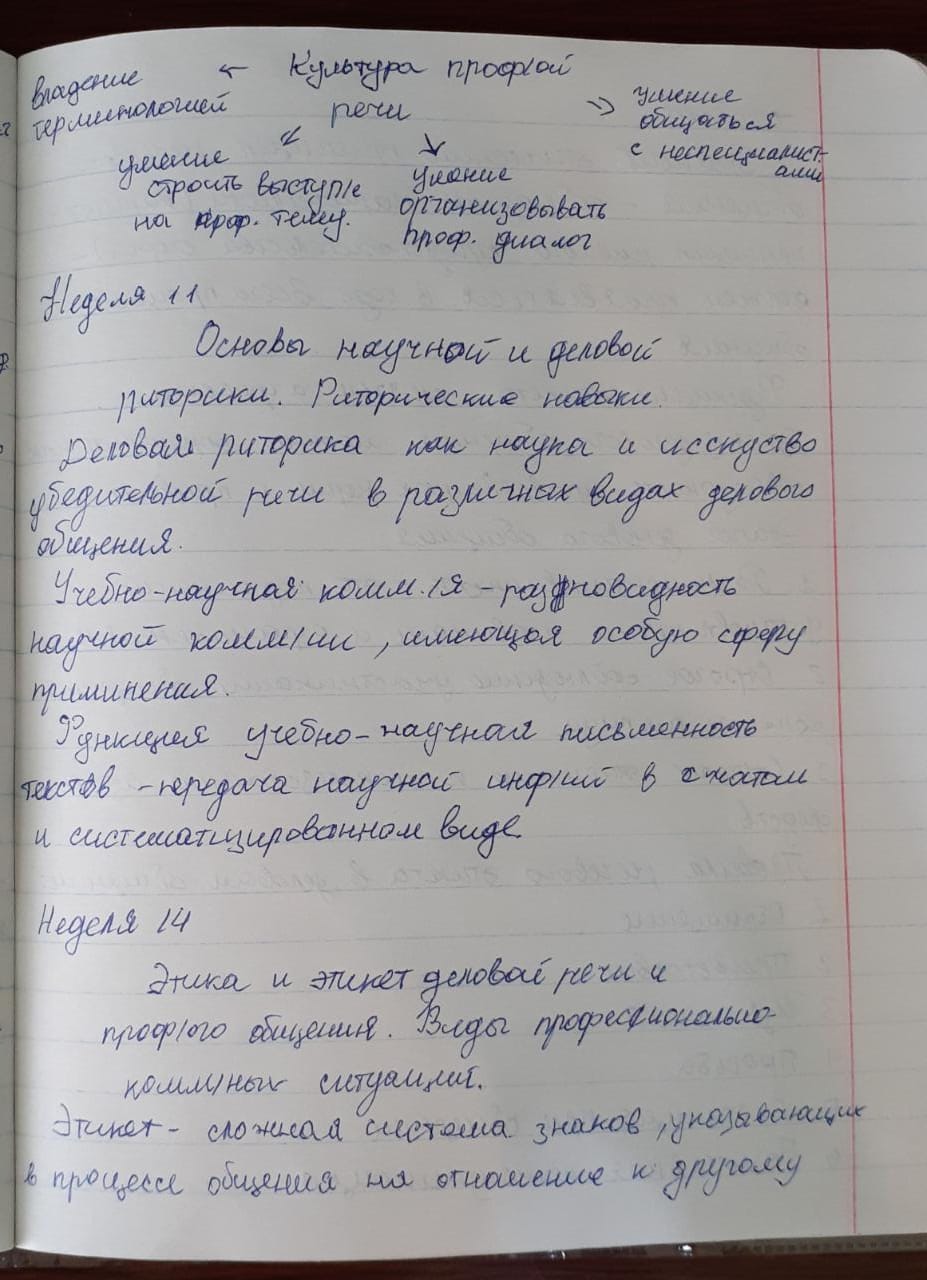 владение ← Культура проф/ой
терминологией речи
⇒ умение
общаться
с неспециалист-
ами
умение
строить выступ/е
на проф. тему.
умение
организовывать
проф. диалог
Неделя 11
Основы научной и деловой
риторики. Риторические навыки.
Деловая риторика как наука и исскуство
убедительной речи в различных видах делового
общения.
Учебно-научная комм./я - разновидность
научной комм/ии, имеющая особую сферу
приминения.
Функция учебно-научная письменность
текстов - передача научной инф/ий в сжатом
и систематизированном виде.
Неделя 14
Этика и этикет деловой речи и
проф/ого общения. Виды профессионально-
комм/ных ситуаций.
Этикет - сложная система знаков, указывающих
в процессе общения на отношение к другому